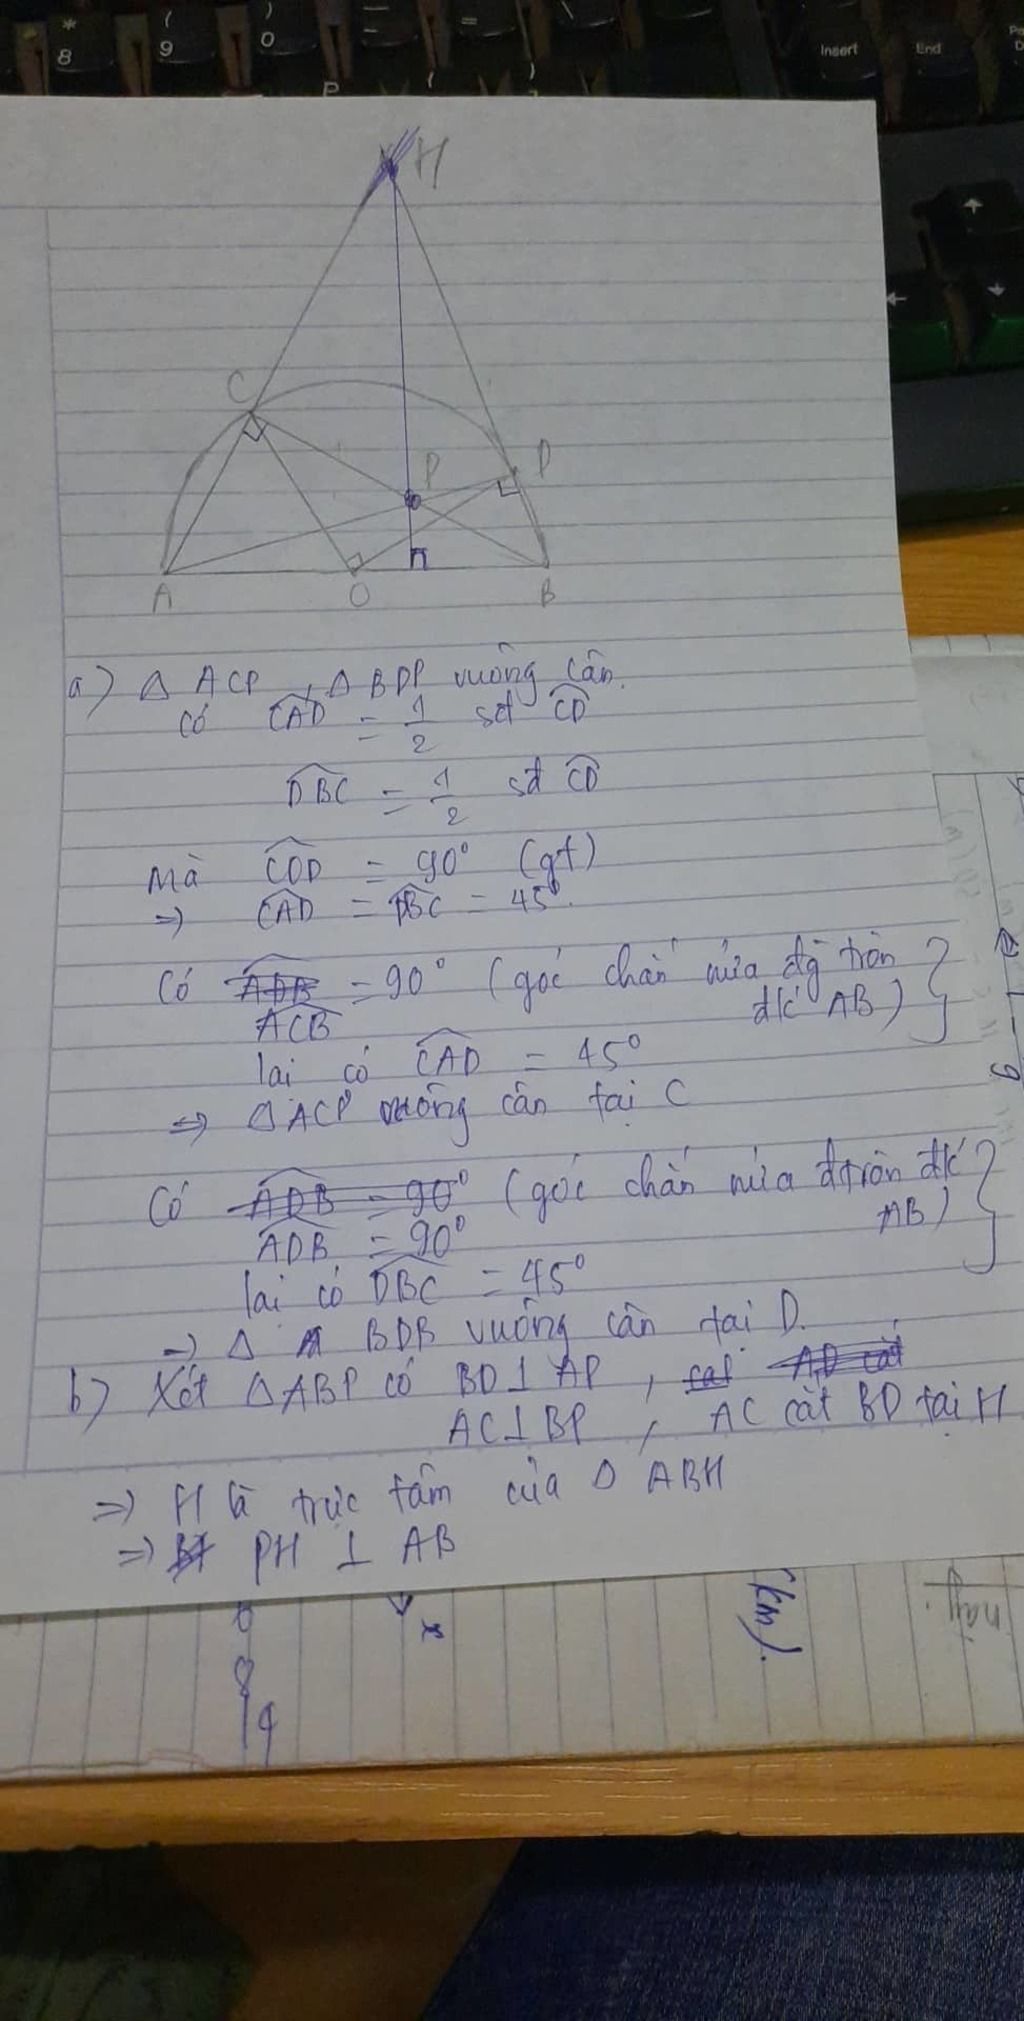 *
8
(
9
)
0
=
P
Insert
End
H
C
P
D
A
O
B
a) Δ ACP, Δ BDP vuông cân.
Có CAD = 1/2 sđ CD
DBC = 1/2 sđ CD
Mà COD = 90° (gt)
=> CAD = DBC = 45°.
Có ADB = 90° (góc chắn nửa đg tròn
ACB đk AB) }
lại có CAD = 45°
=> ΔACP vuông cân tại C
Có ADB = 90° (góc chắn nửa đtròn đk
ADB = 90° AB) }
lại có DBC = 45°
=> Δ BDB vuông cân tại D.
b) Xét ΔABP có BD⊥AP, cat AD cắt
AC⊥BP, AC cắt BD tại H
=> H là trực tâm của Δ ABH
=> PH ⊥ AB
x
(km).
này.